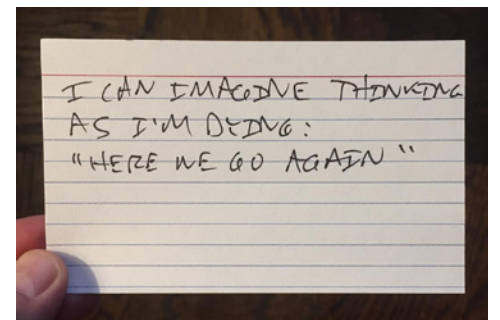 I CAN IMAGINE THINKING
AS I'M DYING:
"HERE WE GO AGAIN"